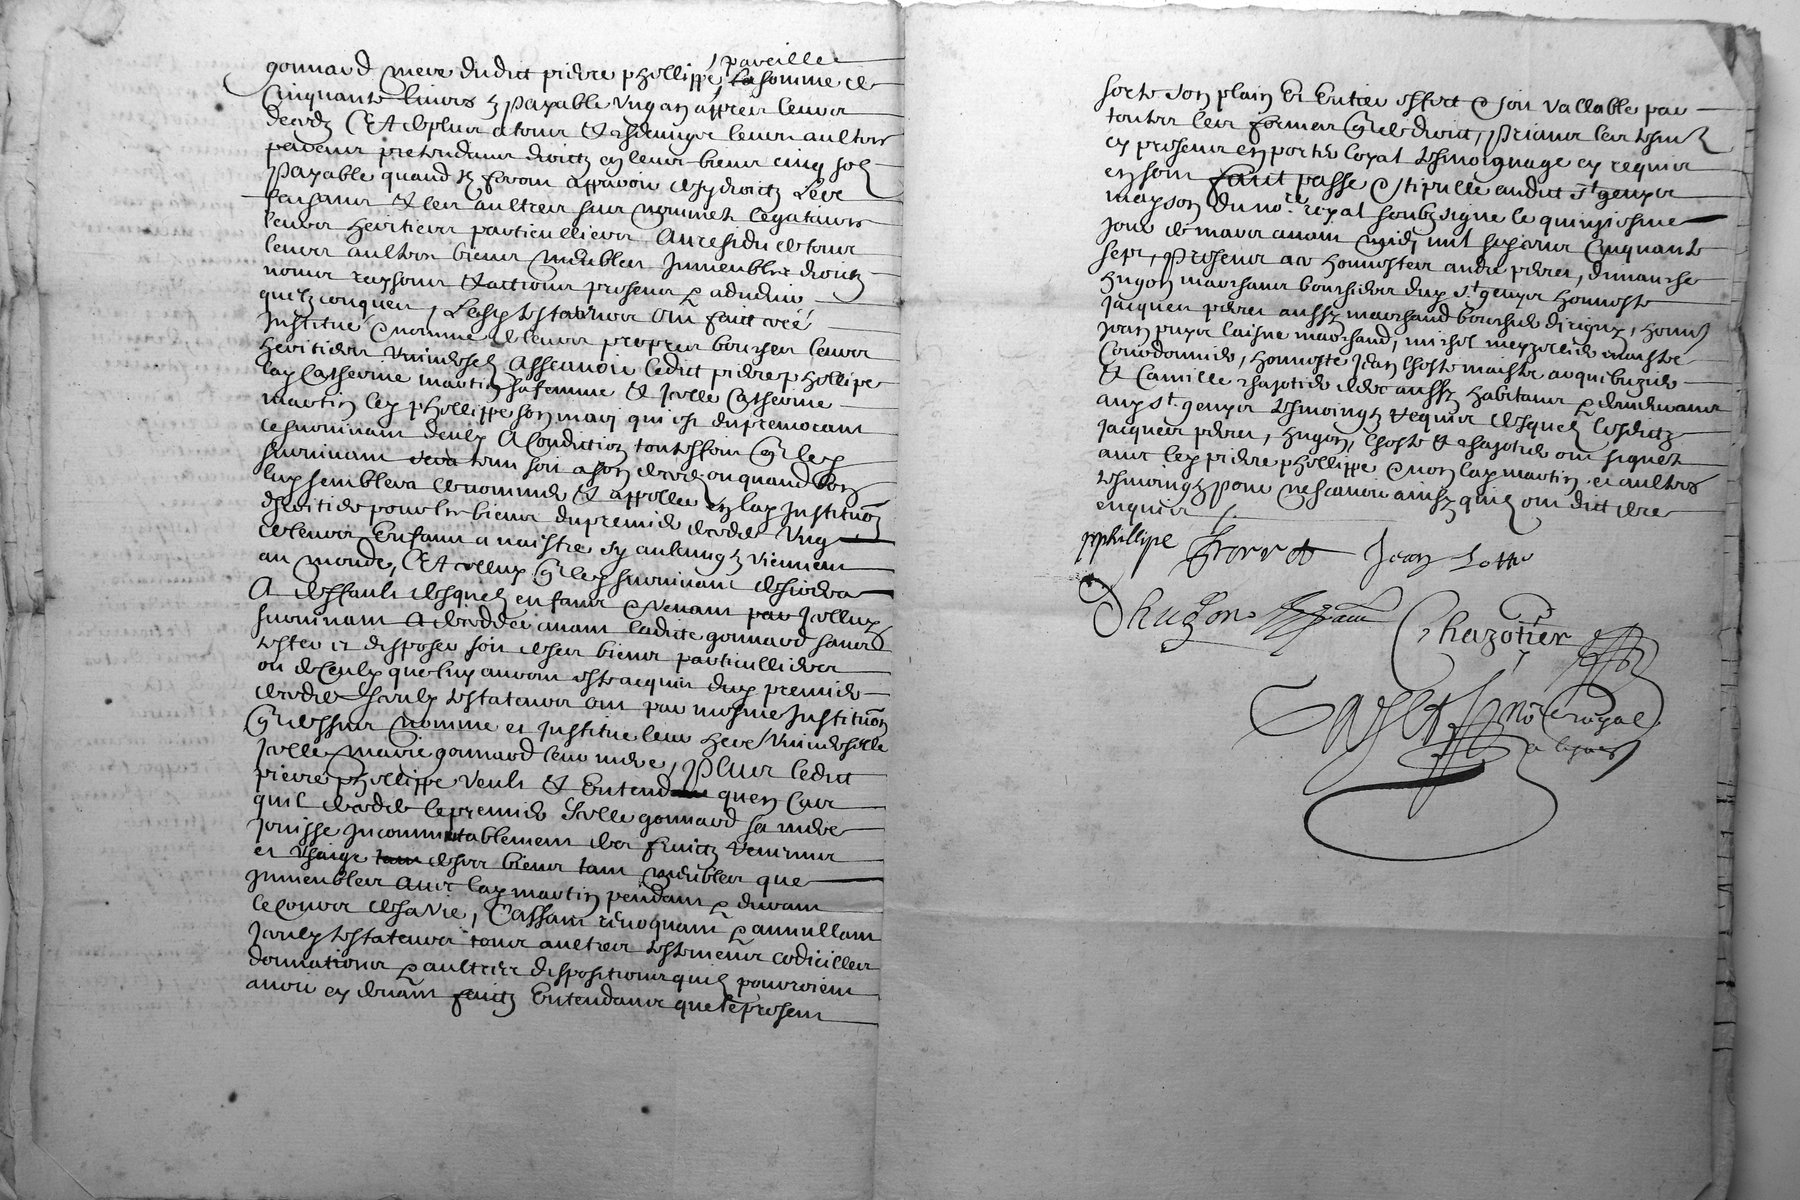 pareille
gonnard mere dudict pierre phellippe la somme de
Cinquante livres payable ung an appres leurs
deces Et de plus a tous et chacungs leurs aultres
parens pretendans droictz en leurs biens cinq solz
payable quand ilz feront apparoir desdy droictz Les
faisans et les aultres sus nommez legataires
leurs heritiers particulliers Au residu de tous
leurs aultres biens meubles Immeubles droictz
noms raysons et actions presens & advenir
quelzconques, Lesdictz testateurs ont faict créé
Institué & nomme de leurs propres bouches leurs
heritiers universelz Asscavoir ledict pierre phellipe
lad Catherine martin sa femme et Icelle Catherine
martin led phellippe son mary qui est du premocant
le survivant deulx A Condiction toutesfois que led
survivant sera tenu soit a son deces ou quand bon
luy semblera de nommer et appeller en lad Institution
dheritier pour les biens du premier decede ung
de leurs Enfans a naistre sy aulcungz viennent
au monde, Et celluy que led survivant desirera
A deffault desquelz enfans & venant par Icelluy
survivant a decedder avant ladite gonnard sans
tester et disposer soit de ses biens particulliers
ou de Ceulx que luy auront este acquis dud premier
decede Iceulx testateurs ont par mesme Institution
que dessus nomme et Institue leur here universelle
Icelle marie gonnard leur mere, Plus ledict
pierre phellippe veult et Entend quen Cas
quil decede le premier Icelle gonnard sa mere
Jouisse Incommutablement des fruictz revenus
et usaige de ses biens tant meubles que
Immeubles avec lad martin pendant & durant
le Cours de sa vie, Cassant revoquant & annullant
Iceulx testateurs tous aultres testamens codicilles
donnations & aultres dispositions quilz pourroient
avoir cy devant faictz Entendans que le present
sorte son plain Et Entier effect & soit vallable par
toutes les formes que de droict, Prians les tesmoingz
cy presens en porter loyal tesmoignage cy requis
en son faict passe & stipulle audict St genyes
mayson du nore royal soubzsigne le quinziesme
jour de mars avant midy mil six cens Cinquante
sept, Presens a ce honnestes andre pierre, dimanche
hugon marchans boursiers dud St genyes honneste
Jacques pierre aussy marchand boursier dicigny, honneste
Jean puyer laisne marchand, michel meyzellier maistre
Cordonnier, honneste Jean lhoste maistre arquebuzier
et Camille chazotier clerc aussy habitans & demeurans
aud St genyes tesmoingz requis desquelz lesdictz
Jacques pierre, hugon, lhoste et chazotier ont signez
avec led pierre phellippe & non lad martin et aultres
tesmoingz pour ne scavoir ainsy quilz ont dict de ce
enquis
pphillipe Jean Lotte
Dhugon Chazotier
nore royal